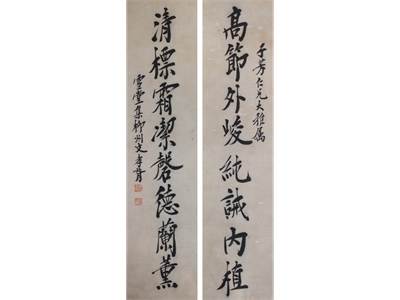 子芳仁兄大雅属
高節外峻純誠内植
清標霜潔馨德蘭薰
雪堂集柳州文孝胥